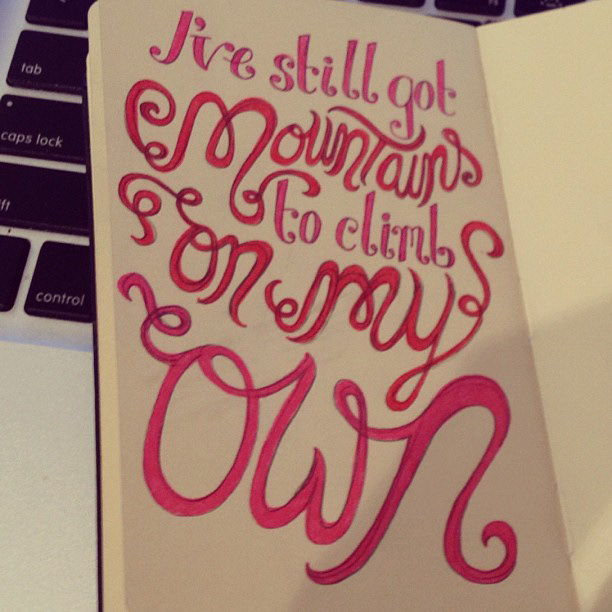 I've still got
mountains
to climb
on my
own
tab
caps lock
ft
control